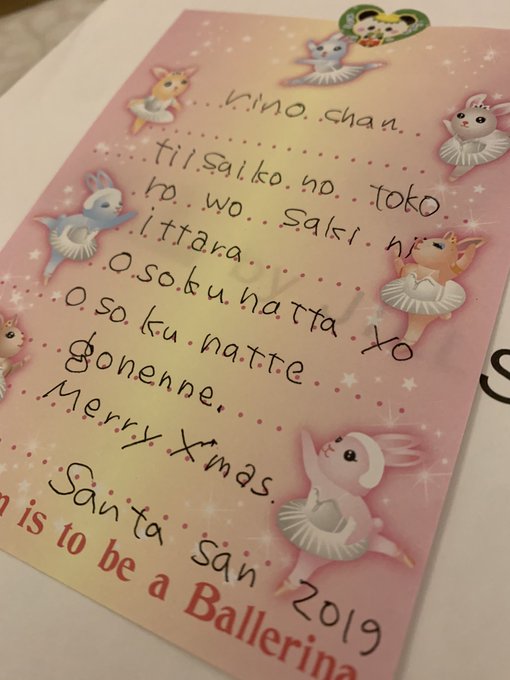 rino chan
tiisaiko no toko
ro wo saki ni
ittara
osoku natta yo
osoku natte
gonenne.
Merry X'mas.
Santa san 2019
is to be a Ballerina
by
S